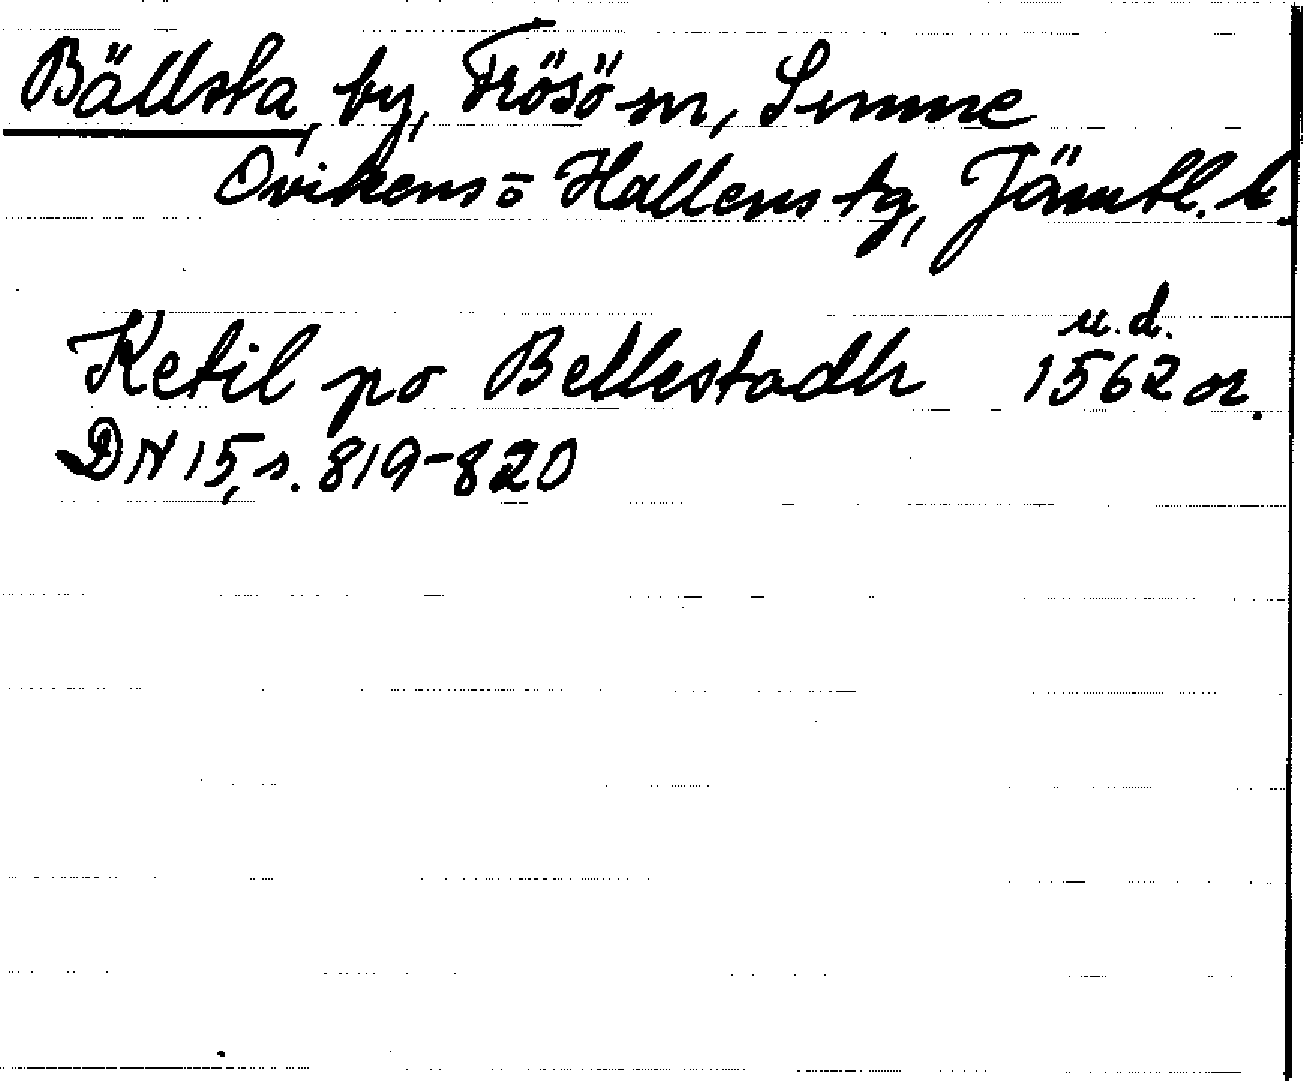 Bällsta, by, Frösö sn, Sunne
Ovikens o Hallens tg, Jämtl. l.
Ketil po Bellestadh u.d. 1562 or.
DN 15, s. 819-820